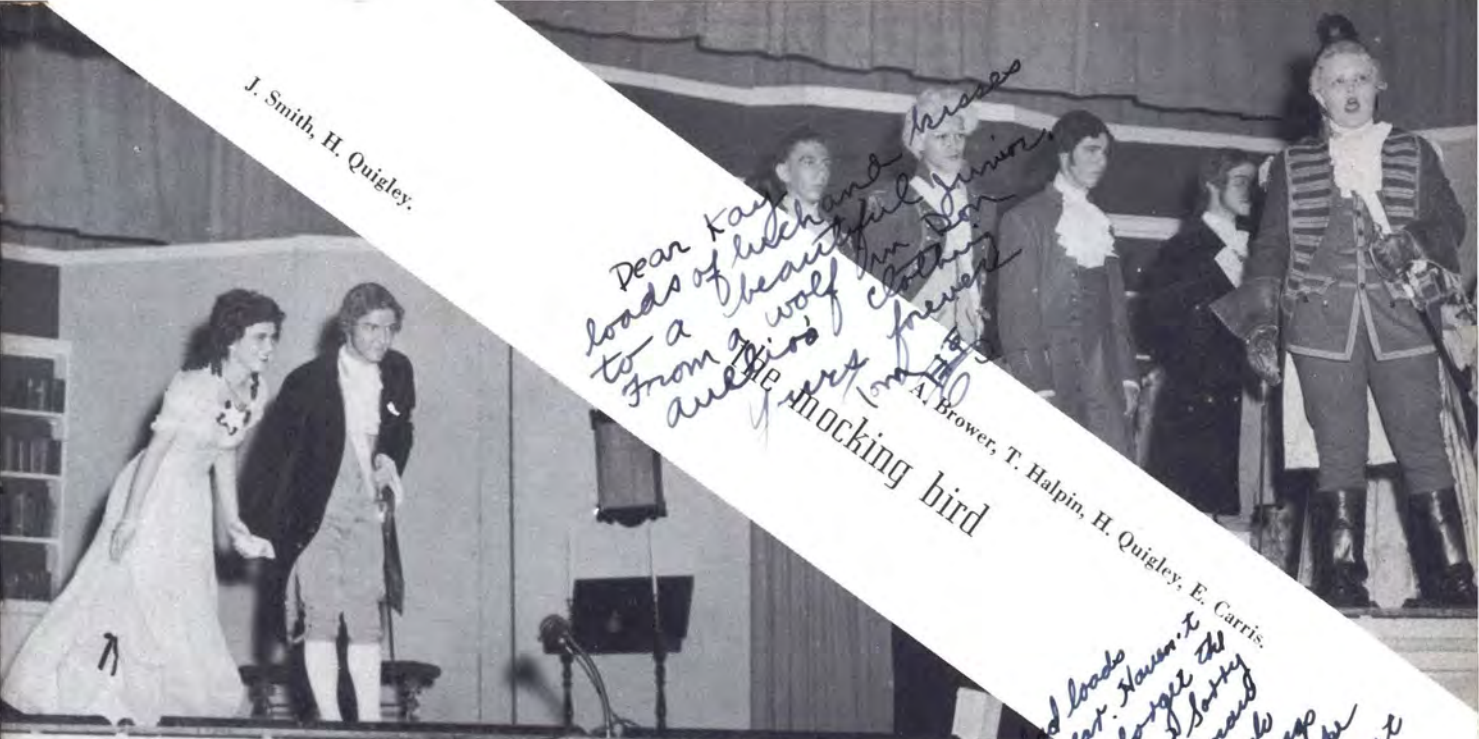 J. Smith, H. Quigley.
Dear Kay,
loads of luck and kisses
to a beautiful Junior.
From a wolf in Don
Aurelio's clothing
Yours forever
Tom
The mocking bird
A. Brower, T. Halpin, H. Quigley, E. Carris.
loads
Haven't
forget the
Sorry